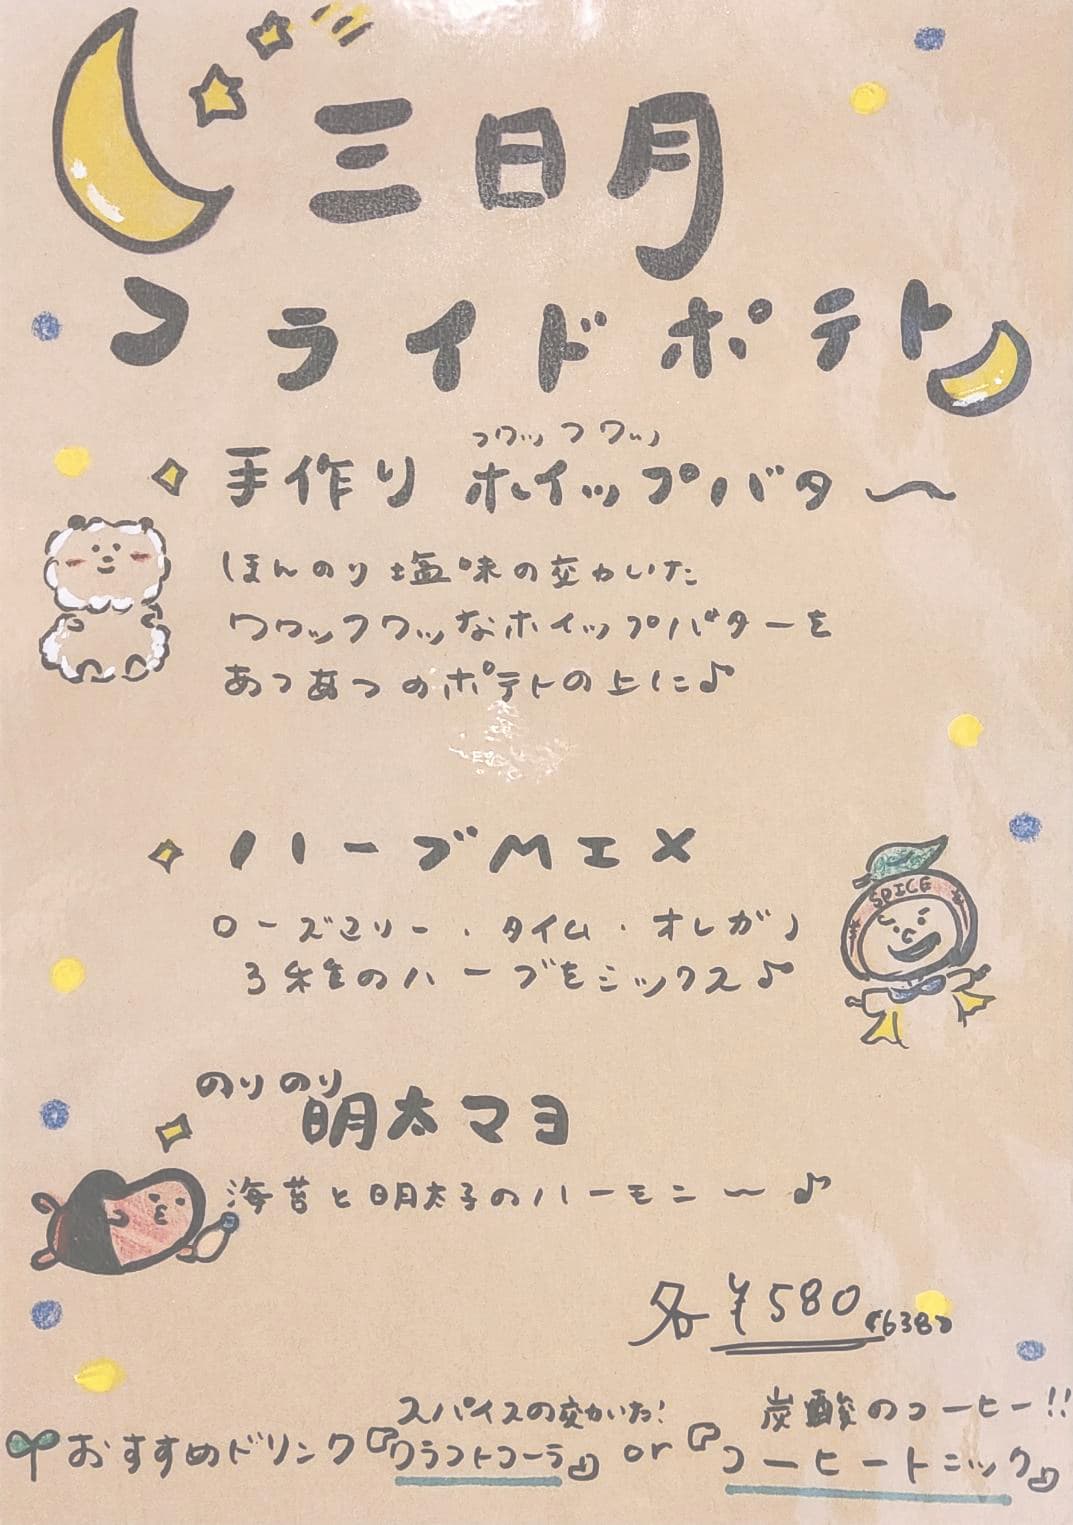 三日月
フライドポテト
フワッフワッ
手作り ホイップバタ〜
ほんのり塩味の交かいた
フワッフワッなホイップバターを
あつあつのポテトの上に♪
ハーブMIX
ローズマリー・タイム・オレガノ
3種のハーブをミックス♪
SPICE
のりのり
明太マヨ
海苔と明太子のハーモニ〜♪
各¥580
(638)
スパイスの交かいた!
炭酸のコーヒー!!
おすすめドリンク『クラフトコーラ』or『コーヒートニック』